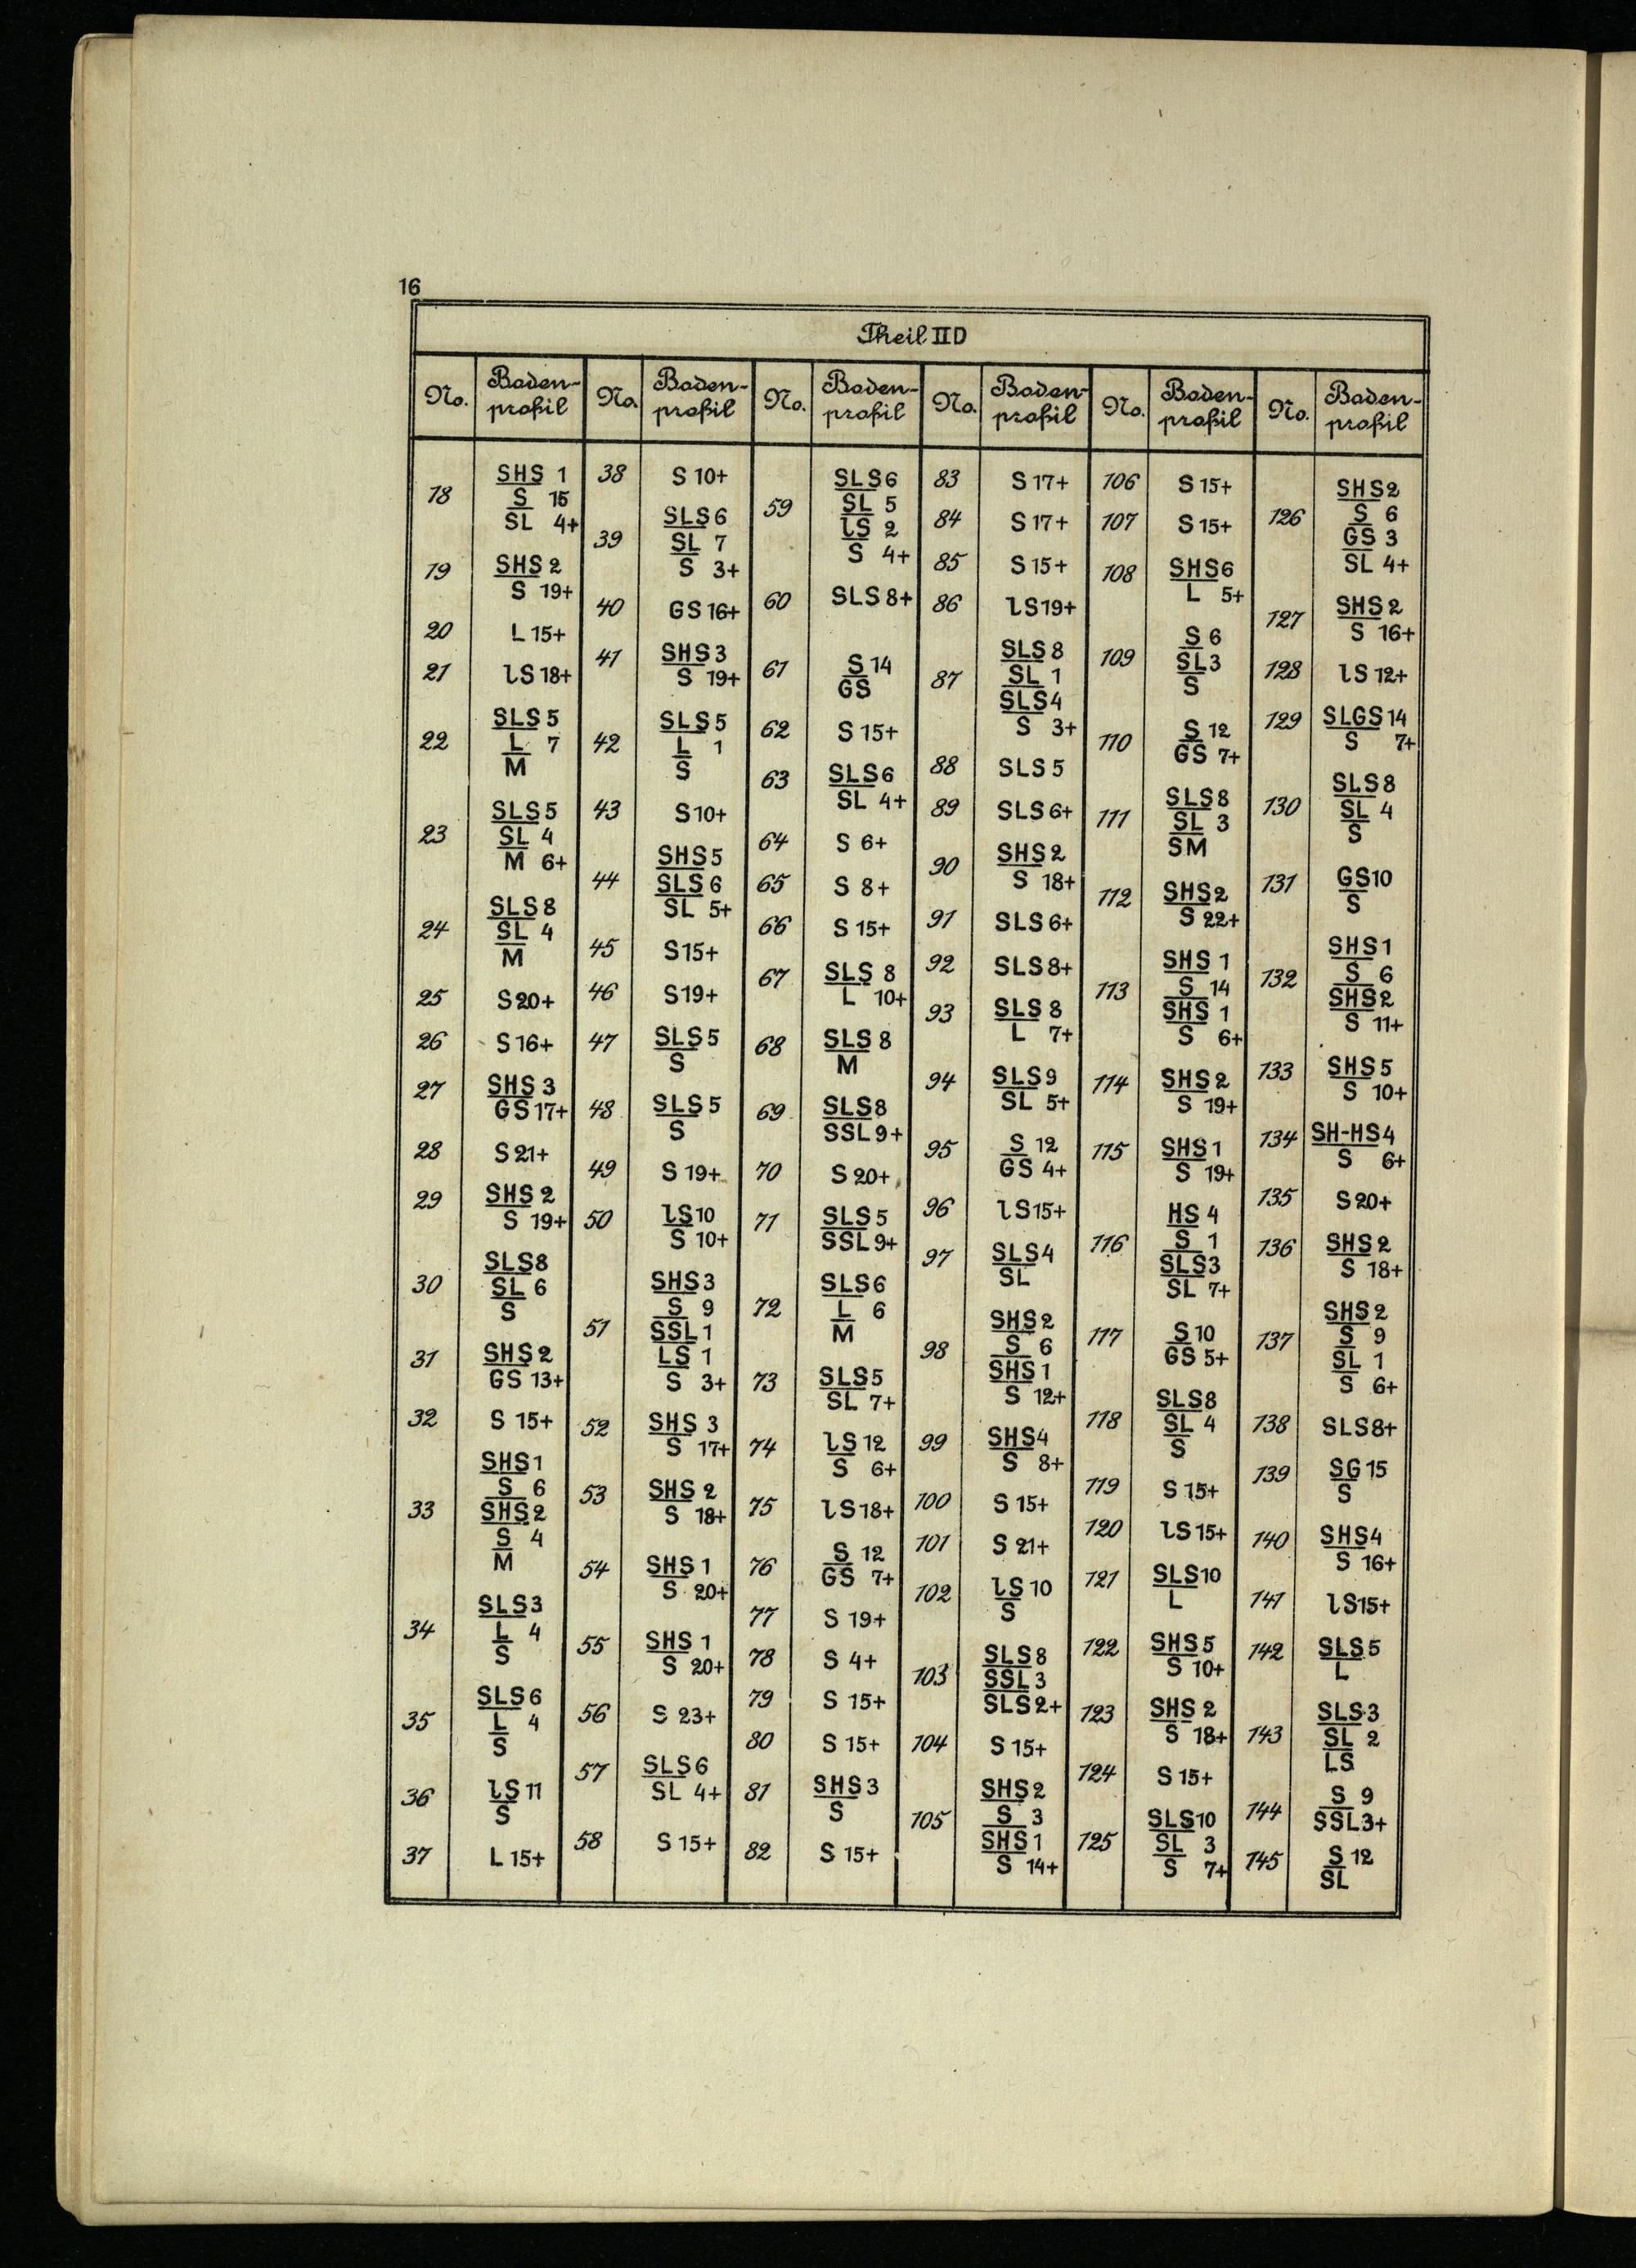 16
Theil II D
No. Boden-profil No. Boden-profil No. Boden-profil No. Boden-profil No. Boden-profil No. Boden-profil
18
SHS 1
S 15
SL 4+
19
SHS 2
S 19+
20 L 15+
21 lS 18+
22
SLS 5
L 7
M
23
SLS 5
SL 4
M 6+
24
SLS 8
SL 4
M
25 S 20+
26 S 16+
27
SHS 3
GS 17+
28 S 21+
29
SHS 2
S 19+
30
SLS 8
SL 6
S
31
SHS 2
GS 13+
32 S 15+
33
SHS 1
S 6
SHS 2
S 4
M
34
SLS 3
L 4
S
35
SLS 6
L 4
S
36
lS 11
S
37 L 15+
38 S 10+
39
SLS 6
SL 7
S 3+
40 GS 16+
41
SHS 3
S 19+
42
SLS 5
L 1
S
43 S 10+
44
SHS 5
SLS 6
SL 5+
45 S 15+
46 S 19+
47
SLS 5
S
48
SLS 5
S
49 S 19+
50
lS 10
S 10+
51
SHS 3
S 9
SSL 1
LS 1
S 3+
52
SHS 3
S 17+
53
SHS 2
S 18+
54
SHS 1
S 20+
55
SHS 1
S 20+
56 S 23+
57
SLS 6
SL 4+
58 S 15+
59
SLS 6
SL 5
lS 2
S 4+
60 SLS 8+
61
S 14
GS
62 S 15+
63
SLS 6
SL 4+
64 S 6+
65 S 8+
66 S 15+
67
SLS 8
L 10+
68
SLS 8
M
69
SLS 8
SSL 9+
70 S 20+
71
SLS 5
SSL 9+
72
SLS 6
L 6
M
73
SLS 5
SL 7+
74
lS 12
S 6+
75 lS 18+
76
S 12
GS 7+
77 S 19+
78 S 4+
79 S 15+
80 S 15+
81
SHS 3
S
82 S 15+
83 S 17+
84 S 17+
85 S 15+
86 lS 19+
87
SLS 8
SL 1
SLS 4
S 3+
88 SLS 5
89 SLS 6+
90
SHS 2
S 18+
91 SLS 6+
92 SLS 8+
93
SLS 8
L 7+
94
SLS 9
SL 5+
95
S 12
GS 4+
96 lS 15+
97
SLS 4
SL
98
SHS 2
S 6
SHS 1
S 12+
99
SHS 4
S 8+
100 S 15+
101 S 21+
102
lS 10
S
103
SLS 8
SSL 3
SLS 2+
104 S 15+
105
SHS 2
S 3
SHS 1
S 14+
106 S 15+
107 S 15+
108
SHS 6
L 5+
109
S 6
SL 3
S
110
S 12
GS 7+
111
SLS 8
SL 3
SM
112
SHS 2
S 22+
113
SHS 1
S 14
SHS 1
S 6+
114
SHS 2
S 19+
115
SHS 1
S 19+
116
HS 4
S 1
SLS 3
SL 7+
117
S 10
GS 5+
118
SLS 8
SL 4
S
119 S 15+
120 lS 15+
121
SLS 10
L
122
SHS 5
S 10+
123
SHS 2
S 18+
124 S 15+
125
SLS 10
SL 3
S 7+
126
SHS 2
S 6
GS 3
SL 4+
127
SHS 2
S 16+
128 lS 12+
129
SLGS 14
S 7+
130
SLS 8
SL 4
S
131
GS 10
S
132
SHS 1
S 6
SHS 2
S 11+
133
SHS 5
S 10+
134
SH-HS 4
S 6+
135 S 20+
136
SHS 2
S 18+
137
SHS 2
S 9
SL 1
S 6+
138 SLS 8+
139
SG 15
S
140
SHS 4
S 16+
141 lS 15+
142
SLS 5
L
143
SLS 3
SL 2
LS
144
S 9
SSL 3+
145
S 12
SL